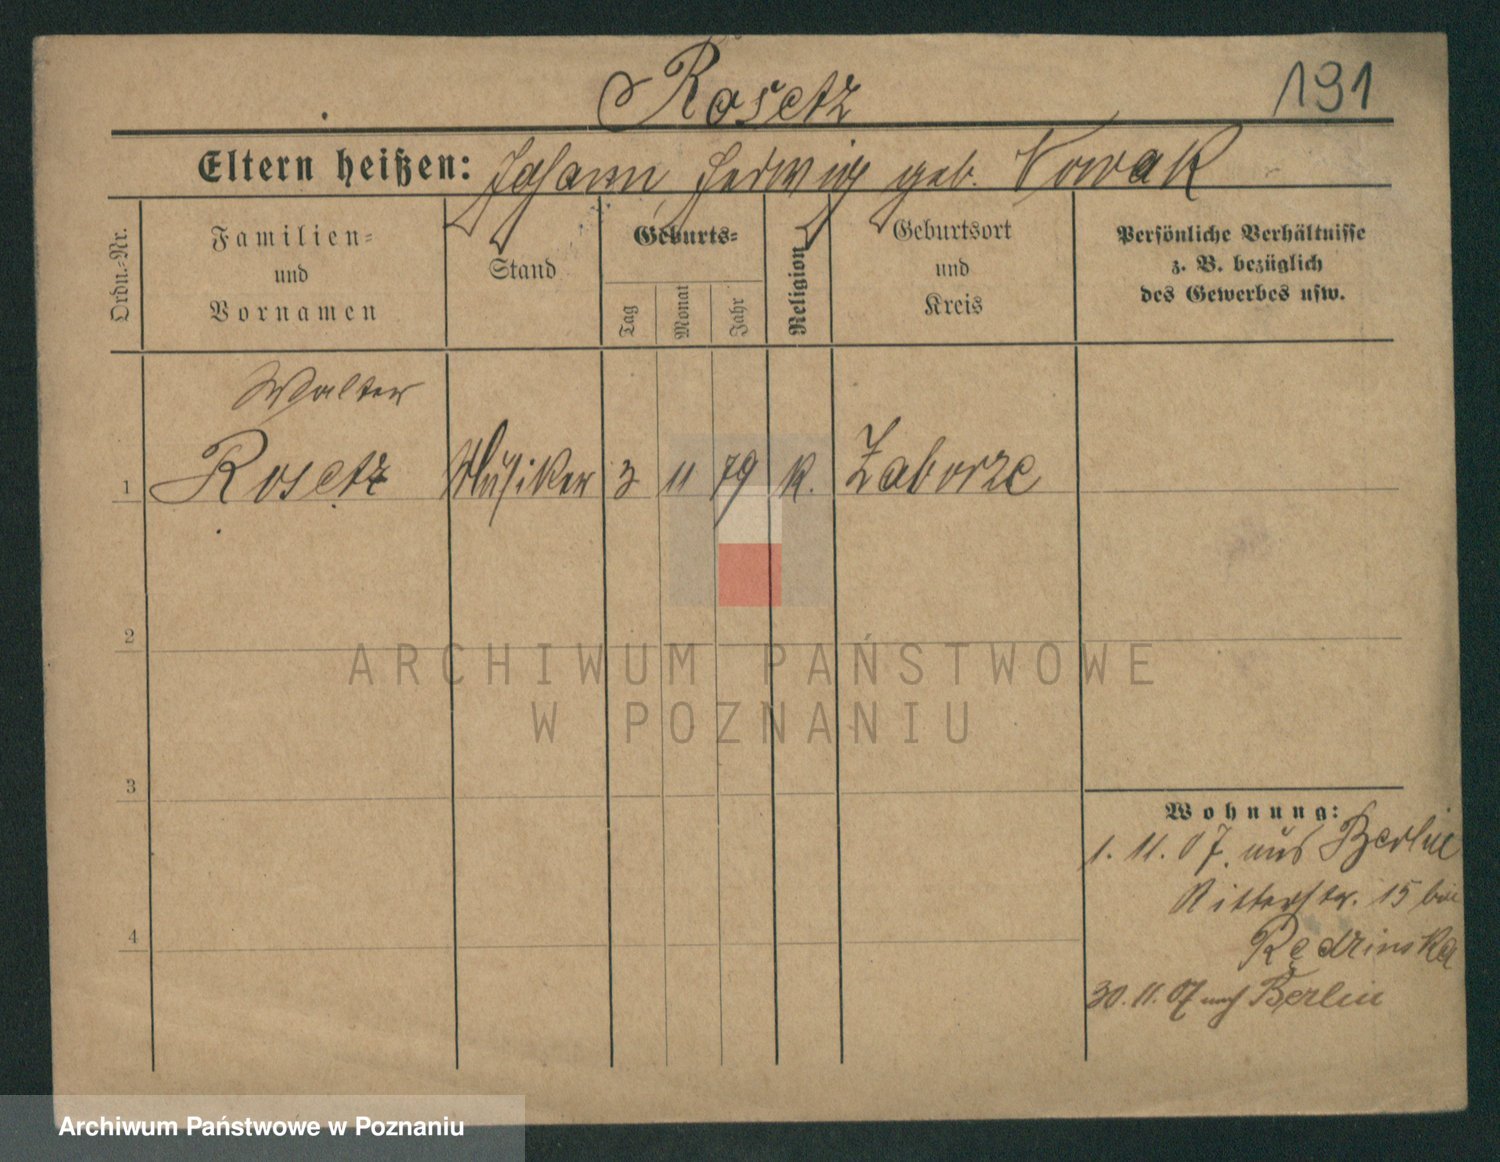 Rosetz
191
Eltern heißen: Johann, Hedwig geb. Nowak
Ordn.-Nr.
Familien-
und
Vornamen
Stand
Geburts-
Tag
Monat
Jahr
Religion
Geburtsort
und
Kreis
Persönliche Verhältnisse
z. B. bezüglich
des Gewerbes usw.
Walter
1 Rosetz Musiker 3 11 79 k. Zaborze
2
ARCHIWUM PAŃSTWOWE
W POZNANIU
3
Wohnung:
1. 11. 07. aus Berlin
Ritterstr. 15 bei
4
30. 11. 07 nach Berlin
Archiwum Państwowe w Poznaniu